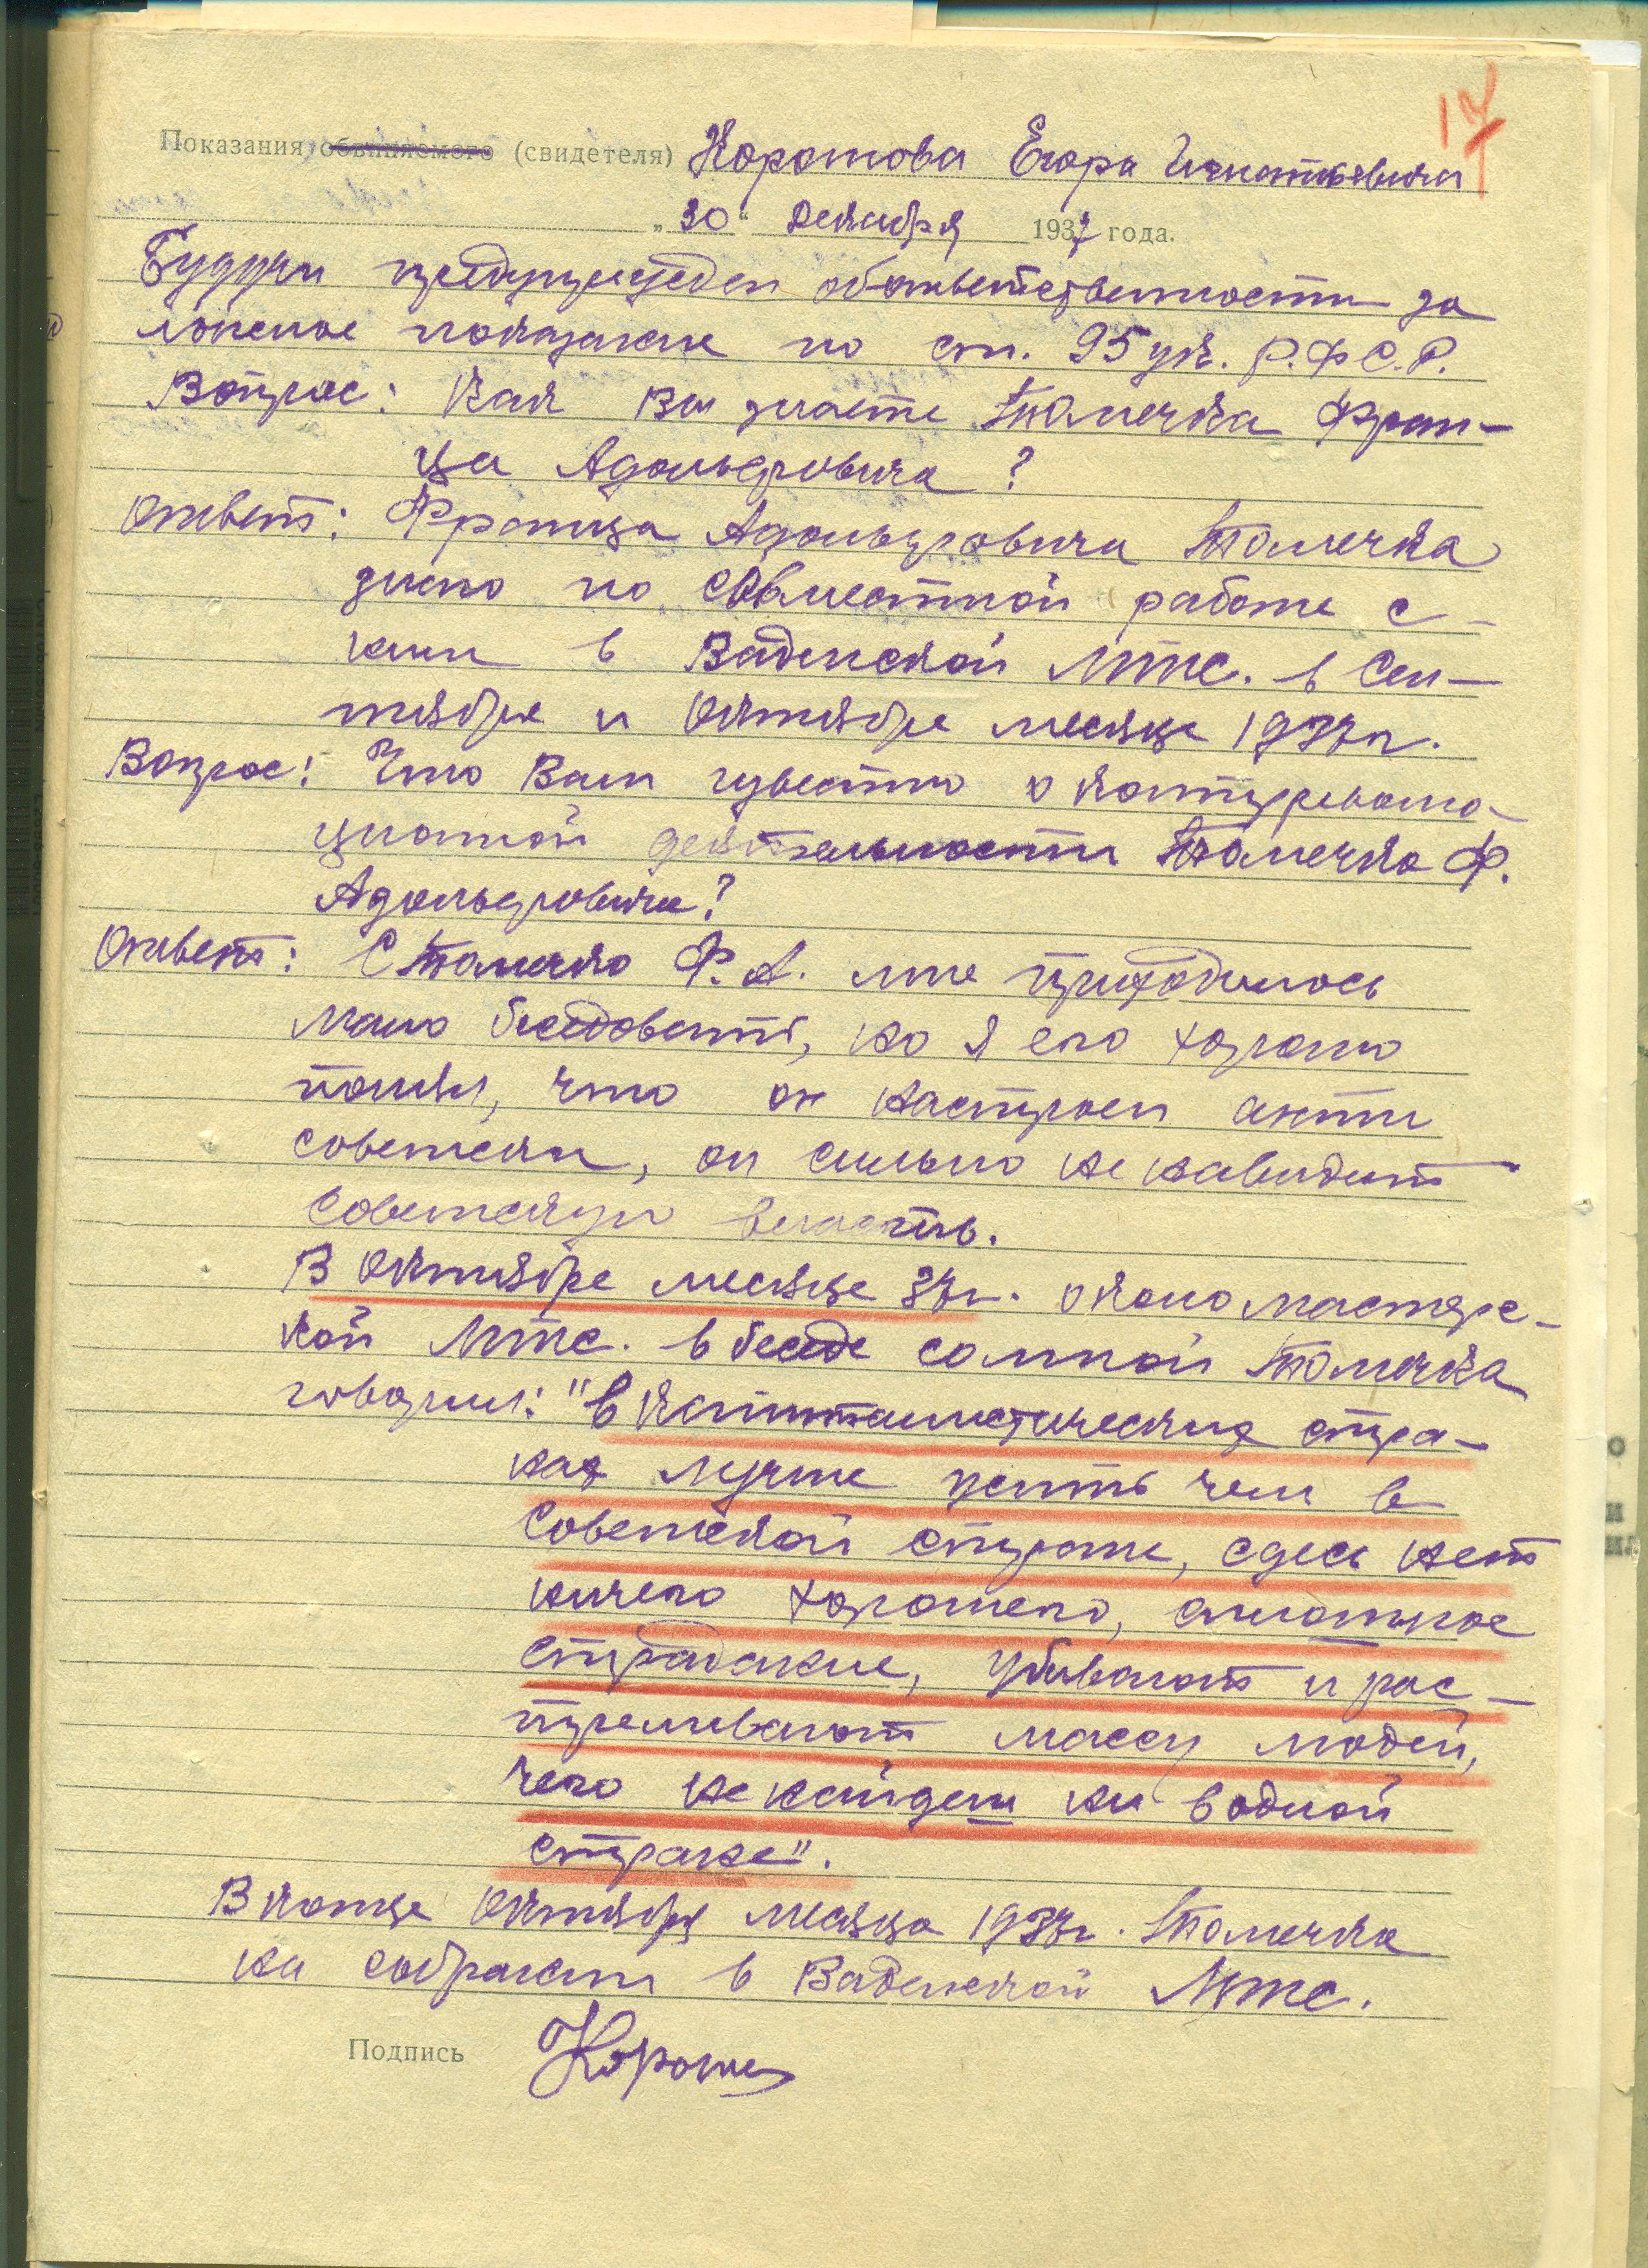 17
Показания обвиняемого (свидетеля) Коротова Егора Игнатьевича
„30“ декабря 1937 года.
Будучи предупрежден об ответственности за
ложное показание по ст. 95 ук. Р.Ф С.Р.
Вопрос: Как Вы знаете Томечка Фран-
ца Адольфовича?
Ответ: Франца Адольфовича Томечка
знаю по совместной работе с
ним в Вадинской МТС. в Сен-
тябре и Октябре месяце 1937г.
Вопрос: Что Вам известно о контрреволю-
ционной деятельности Томечка Ф.
Адольфовича?
Ответ: С Томечко Ф. А. мне приходилось
мало беседовать, но я его хорошо
понял, что он настроен анти
советски, он сильно не навидит
советскую власть.
В Октябре месяце 37г. около мастерс-
кой МТС. в беседе сомной Томечка
говорил: "в капиталистических стра-
нах лучше жить чем в
Советской стране, сдесь нет
ничего хорошего, сплошное
страдание, убивают и рас-
треливают массу людей,
чего не найдеш ни водной
стране".
В конце Октября месяца 1937г. Томечка
на собрании в Вадинской МТС.
Подпись Коротов